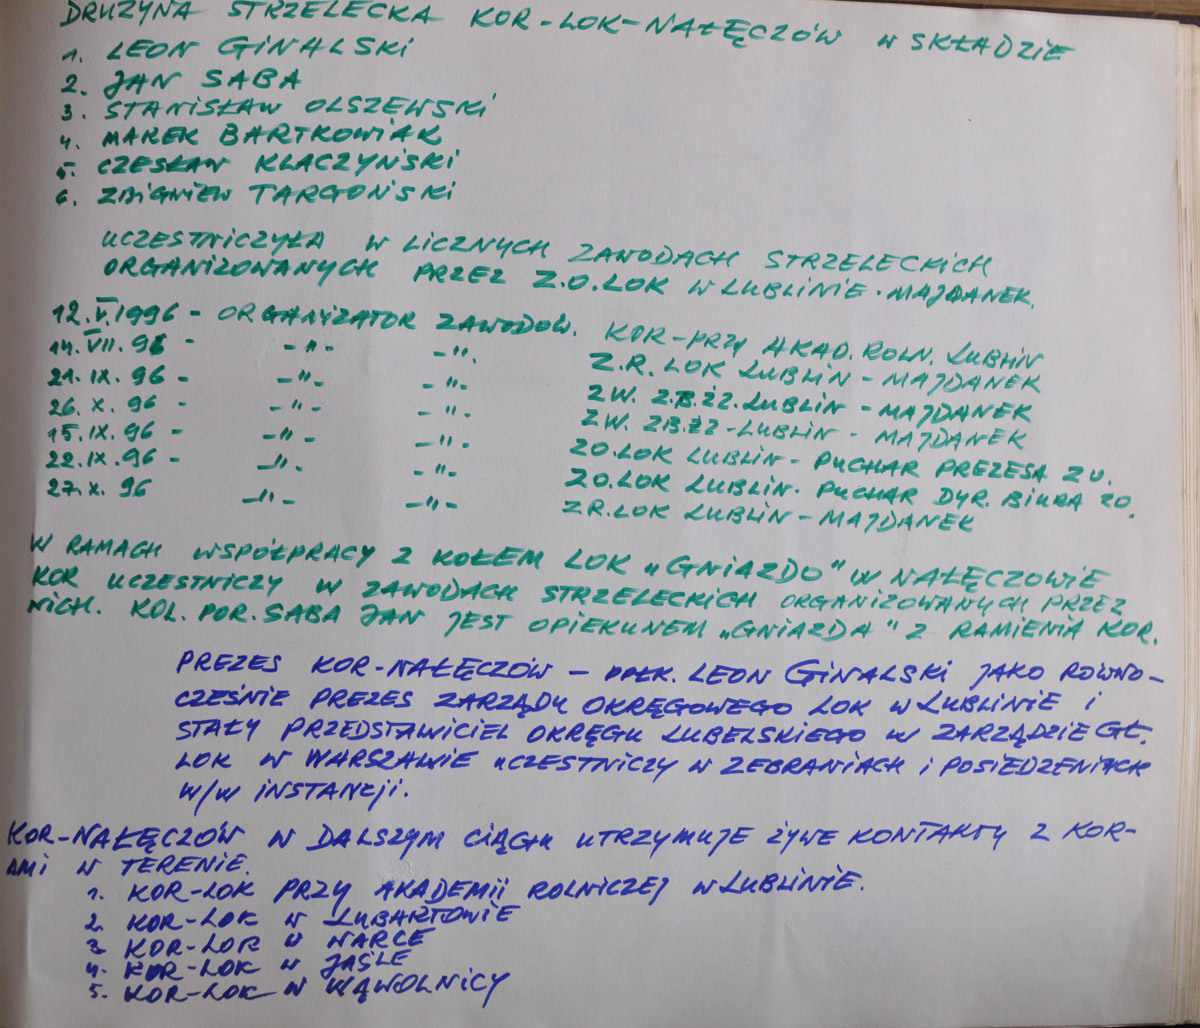 DRUŻYNA STRZELECKA KOR-LOK-NAŁĘCZÓW W SKŁADZIE
1. LEON GINALSKI
2. JAN SABA
3. STANISŁAW OLSZEWSKI
4. MAREK BARTKOWIAK
5. CZESŁAW KLACZYŃSKI
6. ZBIGNIEW TARGOŃSKI
UCZESTNICZYŁA W LICZNYCH ZAWODACH STRZELECKICH
ORGANIZOWANYCH PRZEZ Z.O.LOK W LUBLINIE-MAJDANEK.
12.V.1996 - ORGANIZATOR ZAWODÓW. KOR-PRZY AKAD.ROLN.LUBLIN
14.VII.96 - -"- -". Z.R. LOK LUBLIN - MAJDANEK
21.IX.96 - -"- -"- ZW. Z.B.ŻZ.LUBLIN - MAJDANEK
26.X.96 - -"- -"- ZW. ZB.ŻZ-LUBLIN - MAJDANEK
15.IX.96 - -"- -"- ZO.LOK LUBLIN- PUCHAR PREZESA ZW.
22.IX.96 - -"- -"- ZO.LOK LUBLIN- PUCHAR DYR. BIURA ZO.
27.X.96 -"- -"- ZR.LOK LUBLIN-MAJDANEK
W RAMACH WSPÓŁPRACY Z KOŁEM LOK „GNIAZDO" W NAŁĘCZOWIE
KOR UCZESTNICZY W ZAWODACH STRZELECKICH ORGANIZOWANYCH PRZEZ
NICH. KOL. POR. SABA JAN JEST OPIEKUNEM „GNIAZDA" Z RAMIENIA KOR.
PREZES KOR-NAŁĘCZÓW - PPŁK. LEON GINALSKI JAKO ROWNO-
CZEŚNIE PREZES ZARZĄDU OKRĘGOWEGO LOK W LUBLINIE I
STAŁY PRZEDSTAWICIEL OKRĘGU LUBELSKIEGO W ZARZĄDZIE GŁ.
LOK W WARSZAWIE UCZESTNICZY W ZEBRANIACH I POSIEDZENIACH
W/W INSTANCJI.
KOR-NAŁĘCZÓW W DALSZYM CIĄGU UTRZYMUJE ŻYWE KONTAKTY Z KOR-
AMI W TERENIE.
1. KOR-LOK PRZY AKADEMII ROLNICZEJ W LUBLINIE.
2. KOR-LOK W LUBARTOWIE
3. KOR-LOK W WARCE
4. KOR-LOK W JAŚLE
5. KOR-LOK W WĄWOLNICY